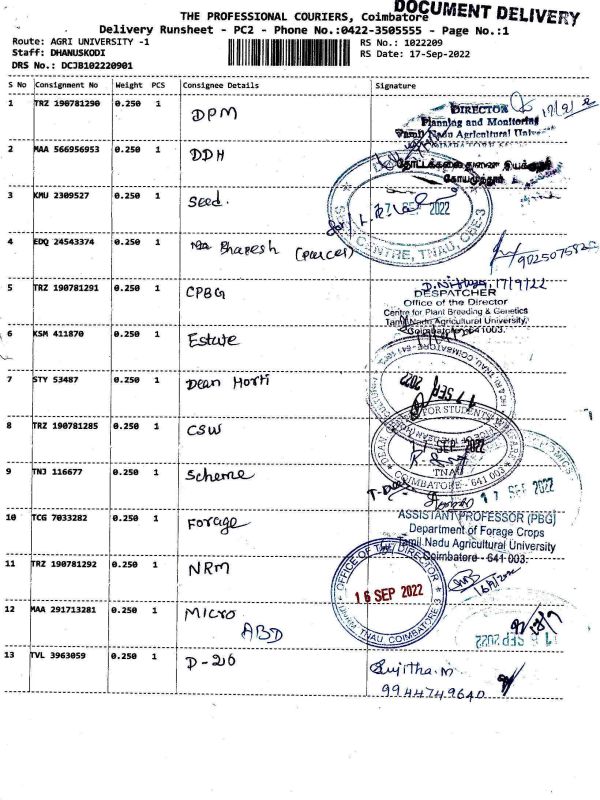 DOCUMENT DELIVERY
THE PROFESSIONAL COURIERS, Coimbatore
Delivery Runsheet - PC2 - Phone No.:0422-3505555 - Page No.:1
Route: AGRI UNIVERSITY -1 RS No.: 1022209
Staff: DHANUSKODI RS Date: 17-Sep-2022
DRS No.: DCJB102220901
S No Consignment No Weight PCS Consignee Details Signature
1 TRZ 190781290 0.250 1 DPM
DIRECTOR
Planning and Monitoring
Tamil Nadu Agricultural
2 MAA 566956953 0.250 1 DDH
கோயமுத்தூர்
3 KMU 2309527 0.250 1 Seed.
SEP 2022
CENTRE, TNAU, CBE-3
4 EDQ 24543374 0.250 1 Bhavesh (Parcel)
5 TRZ 190781291 0.250 1 CPBG
17/9/22
DESPATCHER
Office of the Director
Centre for Plant Breeding & Genetics
Tamil Nadu Agricultural University,
Coimbatore - 641 003.
6 KSM 411870 0.250 1 Estate
7 STY 53487 0.250 1 Dean Horti
17 SEP 2022
8 TRZ 190781285 0.250 1 CSW
17 SEP 2022
TNAU
COIMBATORE - 641 003
9 TNJ 116677 0.250 1 Scheme
17 SEP 2022
10 TCG 7033282 0.250 1 Forage
ASSISTANT PROFESSOR (PBG)
Department of Forage Crops
Tamil Nadu Agricultural University
Coimbatore - 641 003.
11 TRZ 190781292 0.250 1 NRM
OFFICE OF THE DIRECTOR
16 SEP 2022
TNAU, COIMBATORE 3
12 MAA 291713281 0.250 1 Micro
ABD
SEP 2022
13 TVL 3963059 0.250 1 D-26
Sujitha.m
9944749640